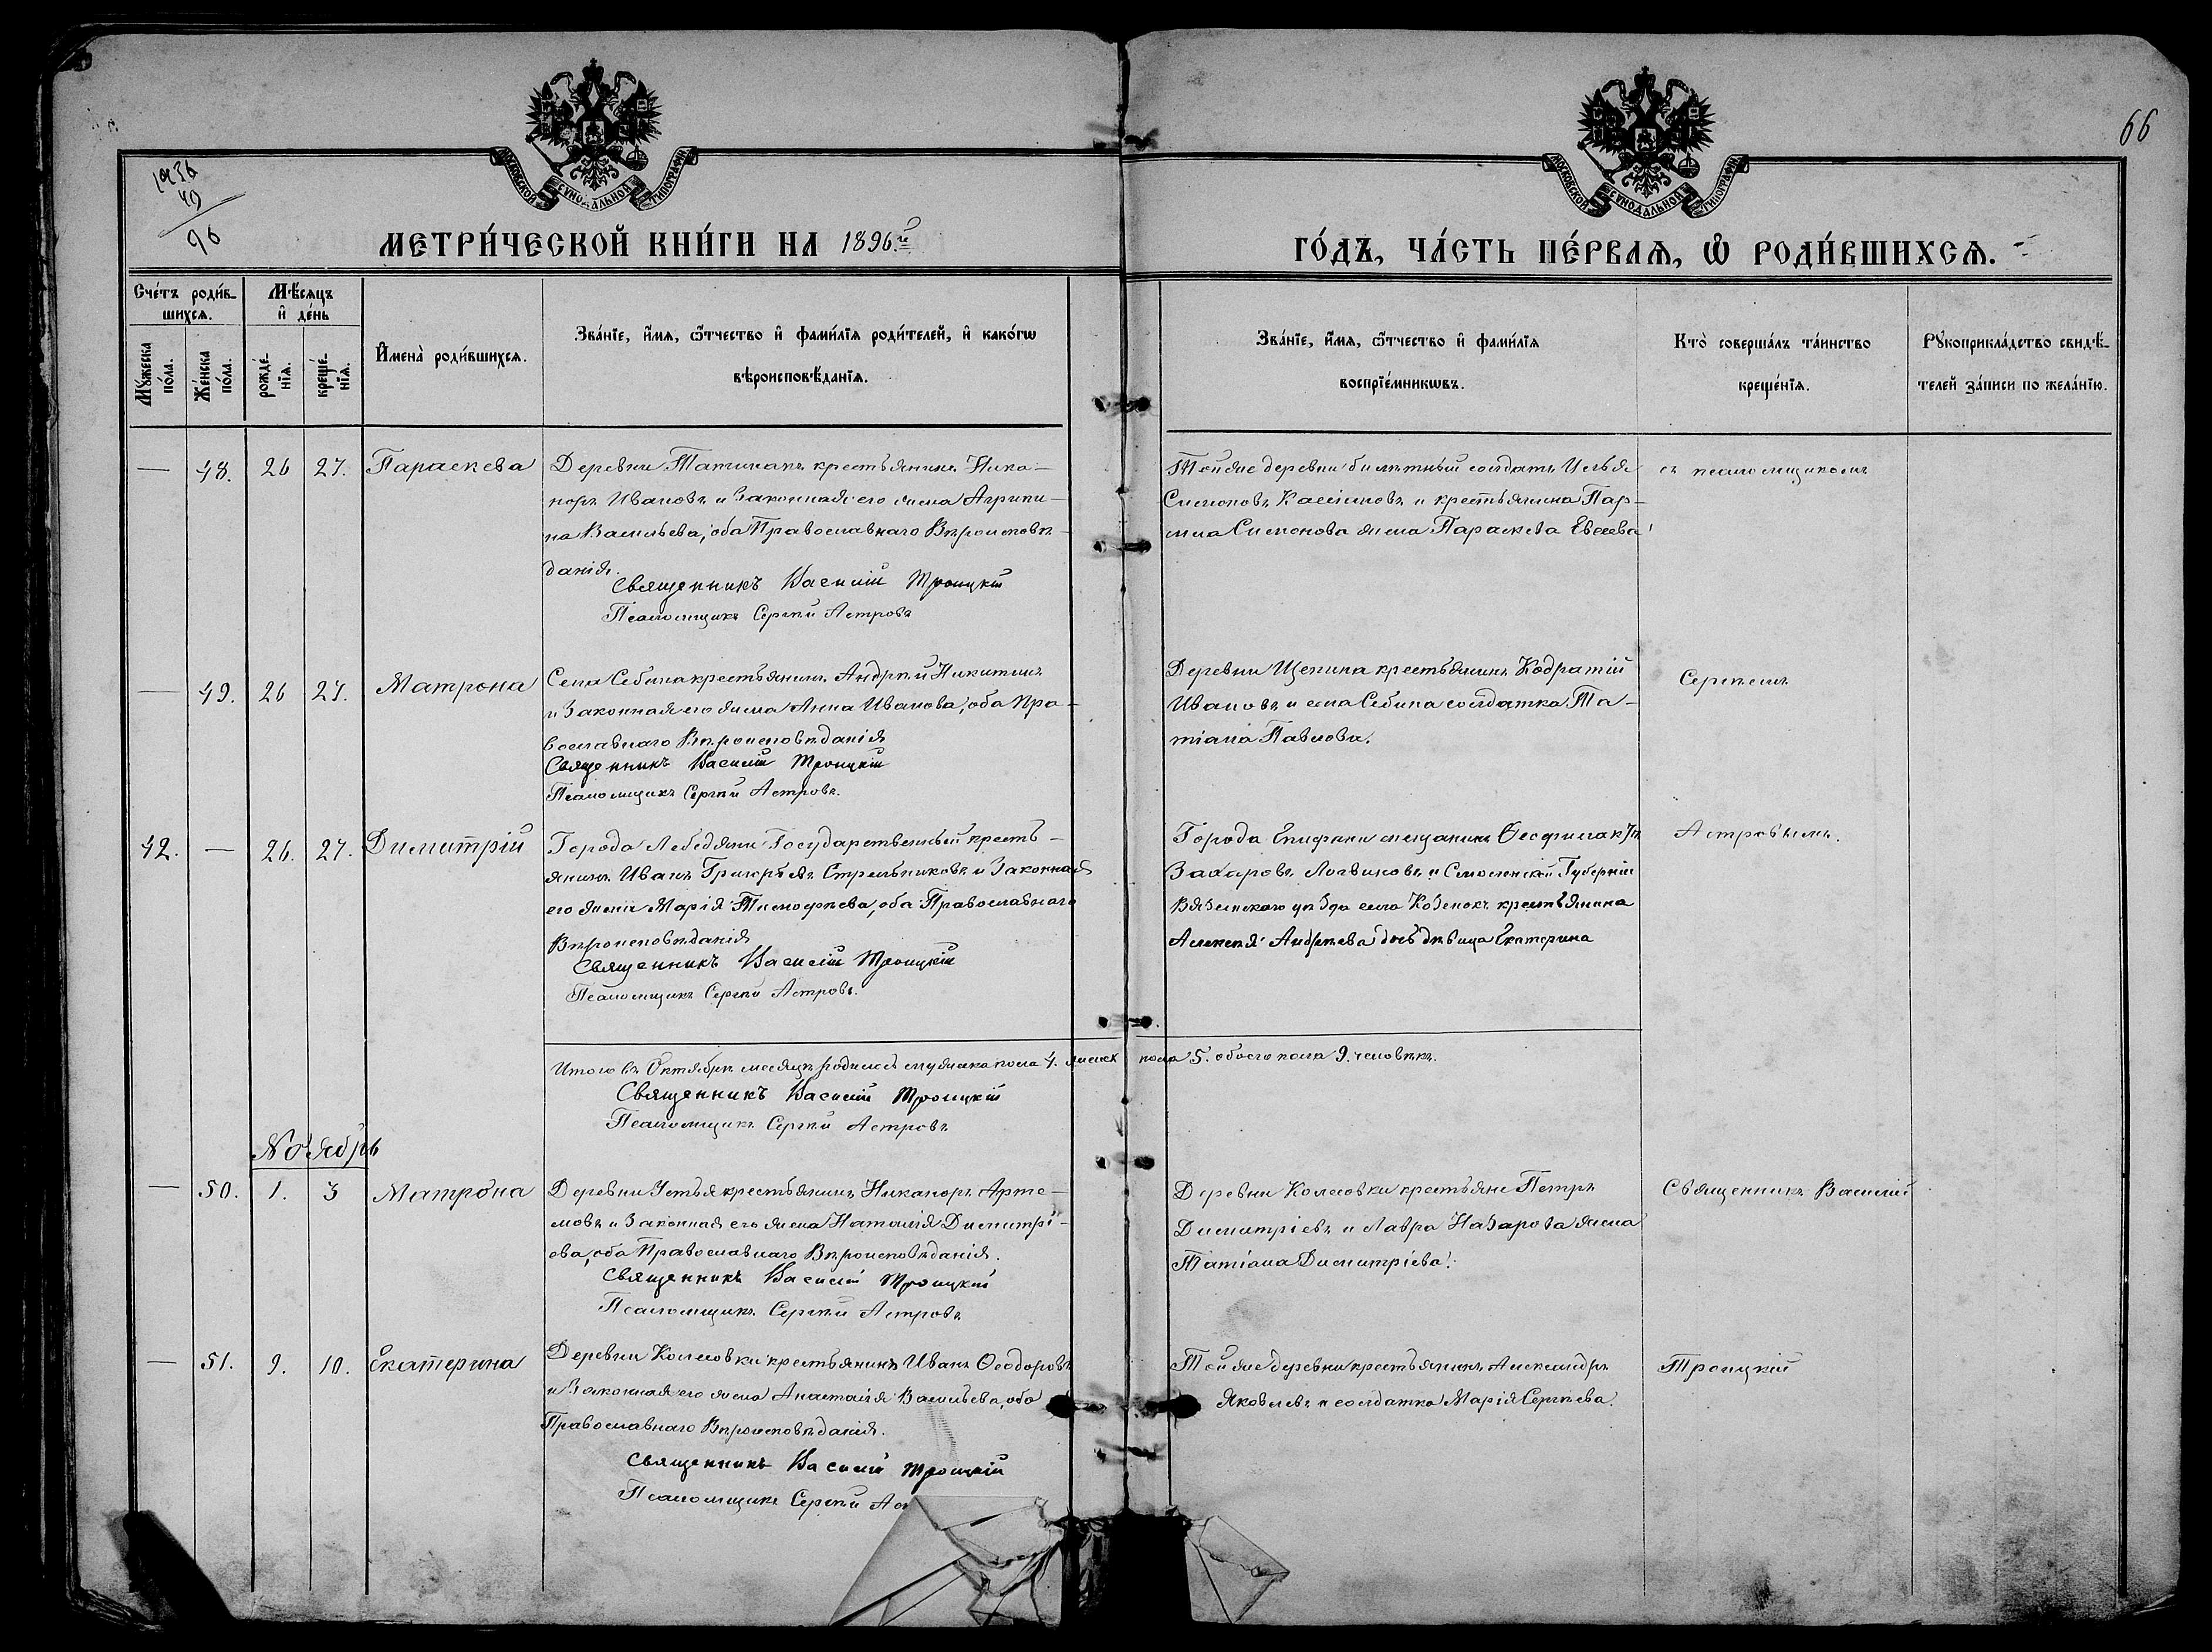 66
1936
40
96
МОСКОВСКОЙ СѴНОДАЛЬНОЙ ТИПОГРАФІИ
МОСКОВСКОЙ СѴНОДАЛЬНОЙ ТИПОГРАФІИ
МЕТРИ́ЧЕСКОЙ КНИ́ГИ НА 1896.й
ГО́ДЪ, ЧА́СТЬ ПЕ́РВАѦ, Ѡ҆ РОДИ́ВШИХСѦ.
Сче́тъ роди́в-
шихсѧ.
Мѣ́сѧцъ
и҆ де́нь
Мꙋ́жеска
по́ла.
Же́нска
по́ла.
рожде́-
нїѧ.
креще́-
нїѧ.
И҆мена̀ роди́вшихсѧ.
Зва́нїе, и҆́мѧ, ѻ҆́тчество и҆ фами́лїѧ роди́телей, и҆ како́гѡ
вѣроисповѣ́данїѧ.
Зва́нїе, и҆́мѧ, ѻ҆́тчество и҆ фами́лїѧ
воспрїе́мникѡвъ.
Кто̀ соверша́лъ та́инство
креще́нїѧ.
Рꙋкоприкла́дство свидѣ́-
телей за́писи по жела́нїю.
— 48. 26 27. Параскева
Деревни Татинакъ крестьянинъ Ника-
норъ Ивановъ и Законная его жена Агрипи-
на Васильева, оба Православнаго Вѣроисповѣ-
данія.
Священникъ Василій Троицкій
Псаломщикъ Сергѣй Астровъ
Той же деревни билетный солдатъ Илья
Симоновъ Касьяновъ и крестьянина Пар-
Симонова жена Параскева Евсеева
съ псаломщикомъ
— 49. 26 27. Матрона
Села Себина крестьянинъ Андрѣй Никитинъ
и Законная его жена Анна Иванова, оба Пра-
вославнаго Вѣроисповѣданія
Священникъ Василій Троицкій
Псаломщикъ Сергѣй Астровъ.
Деревни Щепина крестьянинъ Кодратій
Ивановъ и села Себина солдатка Та-
тіана Павлова.
Сергѣемъ
42. — 26. 27. Димитрій
Города Лебедяни Государственный кресть-
янинъ Иванъ Григорьевъ Стрельниковъ и Законная
его жена Марія Тимофѣева, оба Православнаго
Вѣроисповѣданія
Священникъ Василій Троицкій
Псаломщикъ Сергѣй Астровъ.
Города Епифани мещанинъ Ѳеофилактъ
Захаровъ Логвиновъ и Смоленской Губерніи
Вяземскаго уѣзда села крестьянина
Алексея Андрѣева дочь дѣвица Екатерина
Астровымъ.
Итого въ Октябрѣ месяцѣ родилось мужеска пола 4. женск пола 5. обоего пола 9. человѣкъ.
Священникъ Василій Троицкій
Псаломщикъ Сергѣй Астровъ
Ноябрь
— 50. 1. 3 Матрона
Деревни Устья крестьянинъ Никаноръ Арте-
мовъ и Законная его жена Наталія Димитрі-
ева, оба Православнаго Вѣроисповѣданія.
Священникъ Василій Троицкій
Псаломщикъ Сергѣй Астровъ
Деревни Колесовки крестьяне Петръ
Димитріевъ и Лавра Назарова жена
Татіана Димитріева.
Священникъ Василій
— 51. 9. 10. Екатерина
Деревни Колесовки крестьянинъ Иванъ Ѳеодоровъ
и Законная его жена Анастасія Васильева, оба
Православнаго Вѣроисповѣданія.
Священникъ Василій Троицкій
Псаломщикъ Сергѣй Ас
Той же деревни крестьянинъ Александръ
Яковлевъ и солдатка Марія Сергѣева.
Троицкій